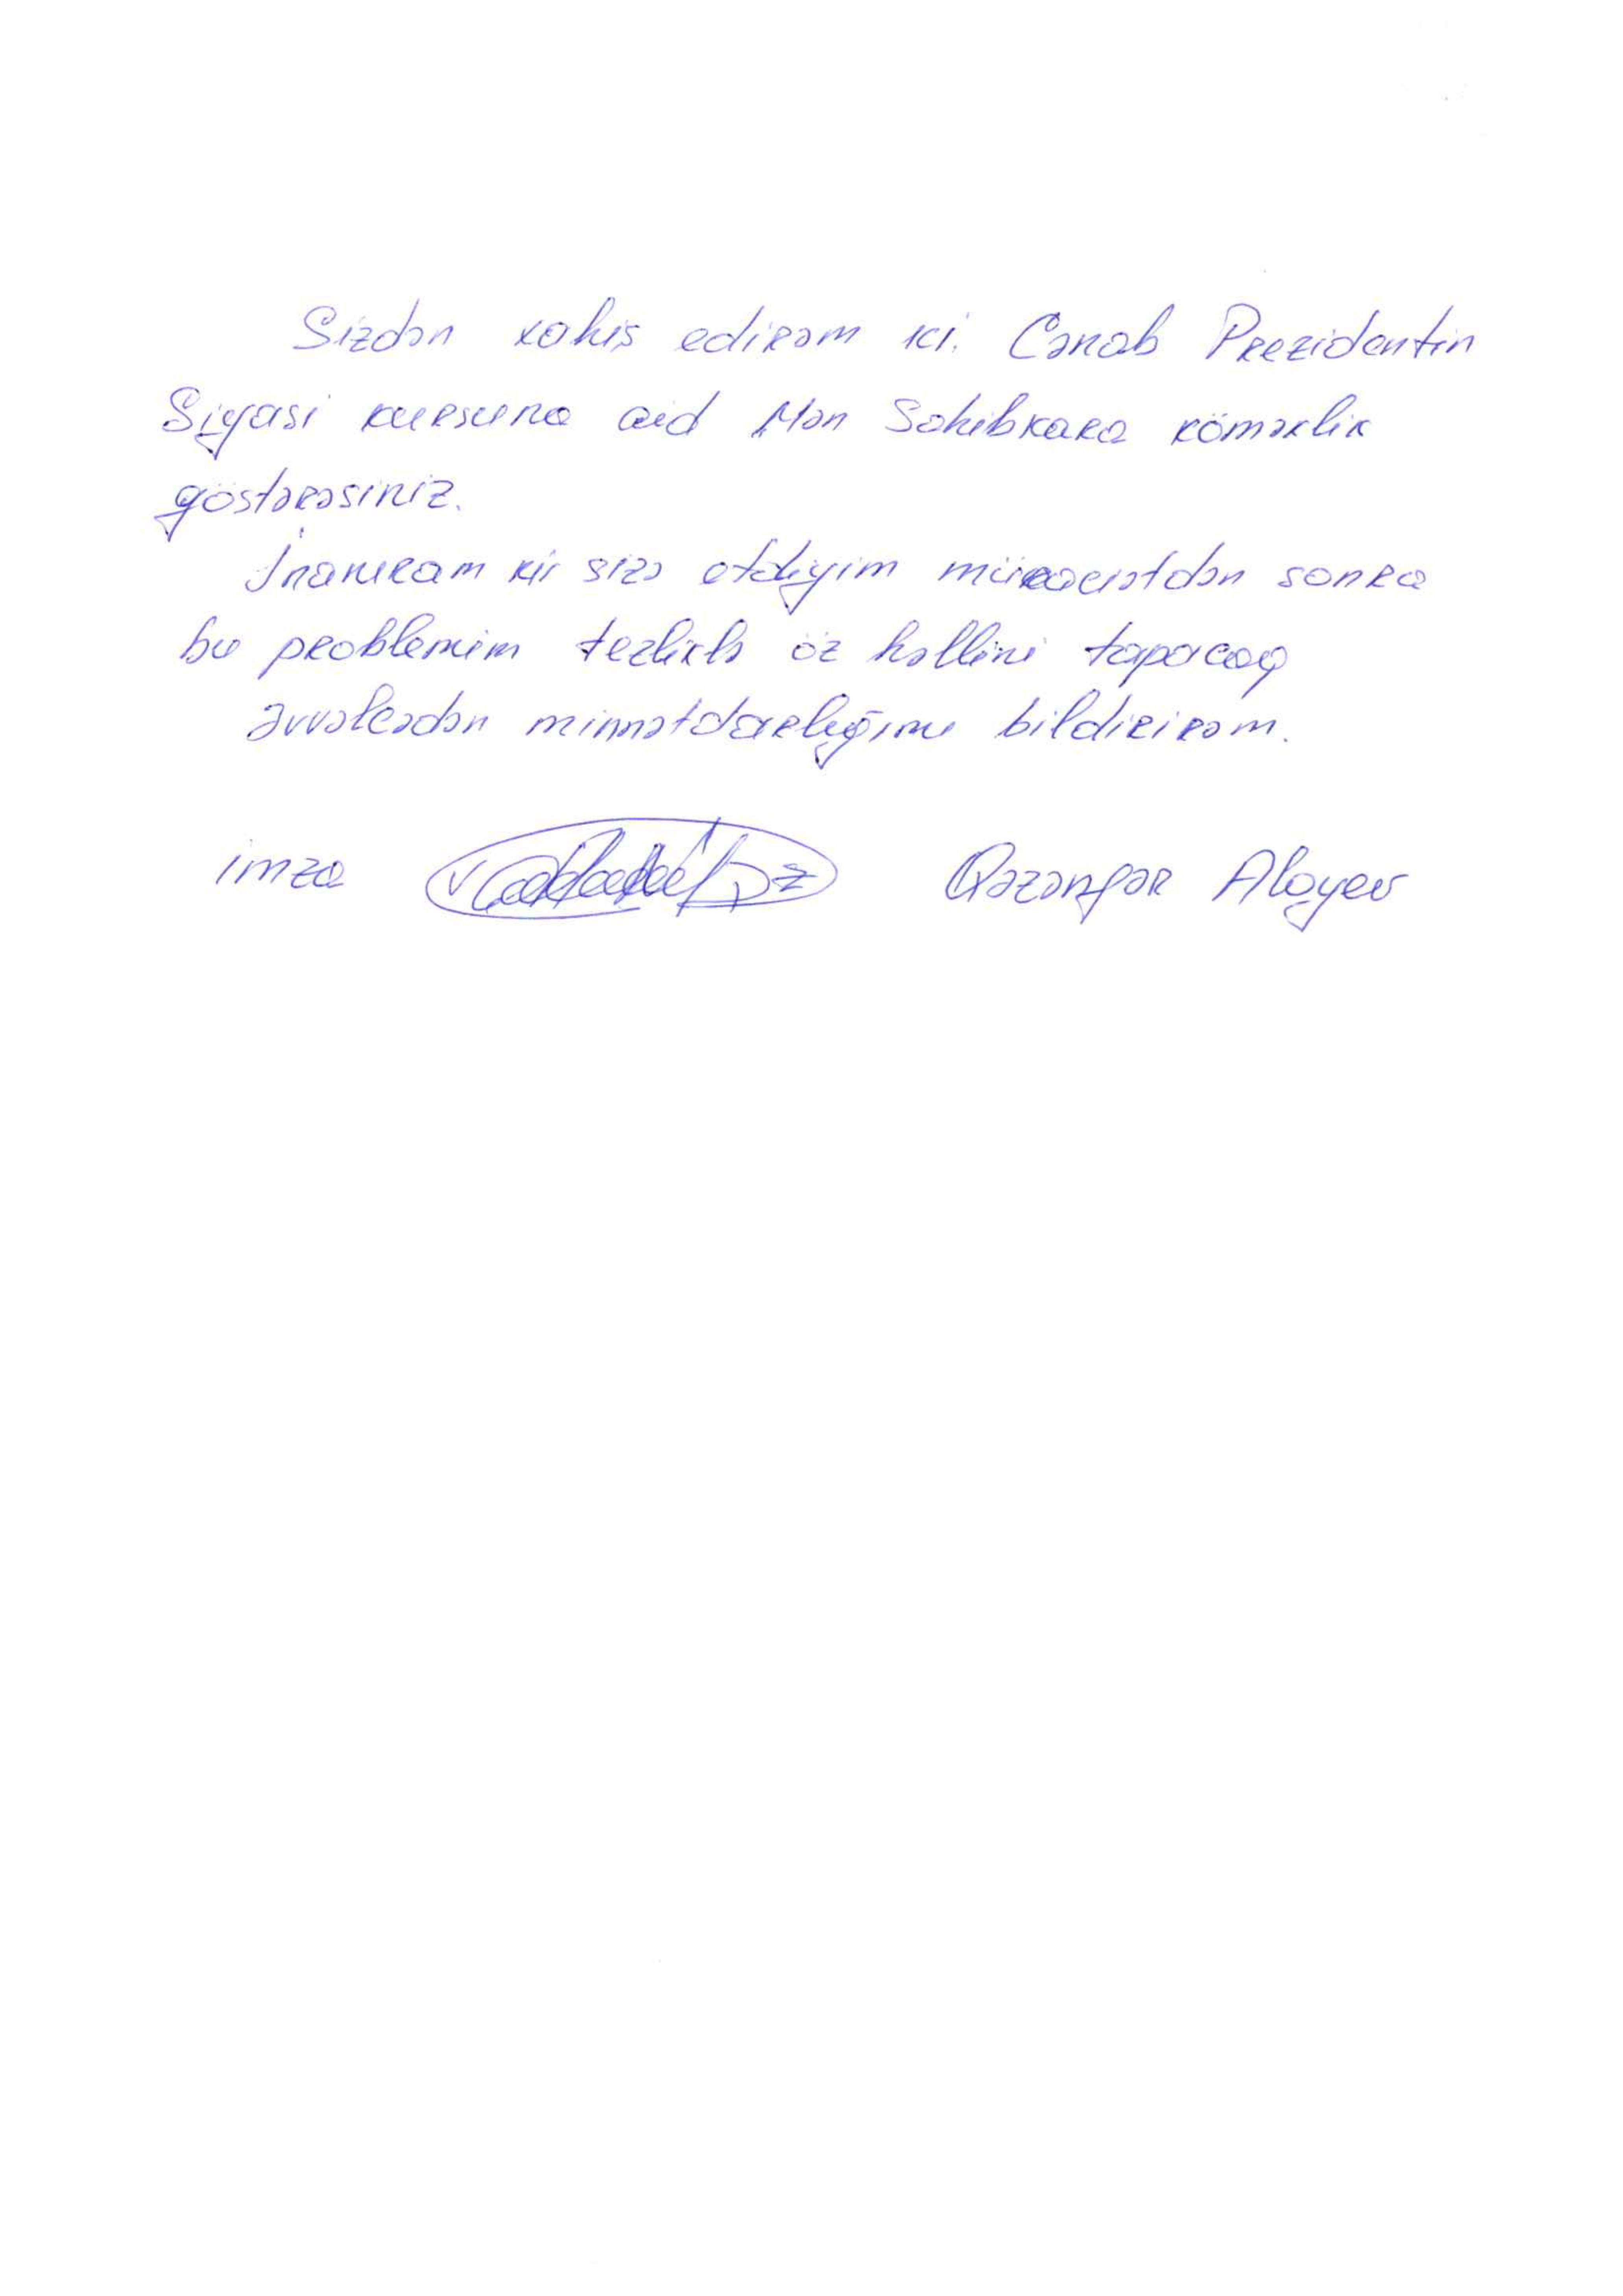 Sizdən xahiş edirəm ki. Cənab Prezidentin
Siyasi kursuna aid Mən Sahibkara köməklik
göstərəsiniz.
İnanıram ki sizə etdiyim müraciətdən sonra
bu problemim tezliklə öz həllini tapacaq
Əvvəlcədən minnətdarlığımı bildirirəm.
imza Qəzənfər Alayev